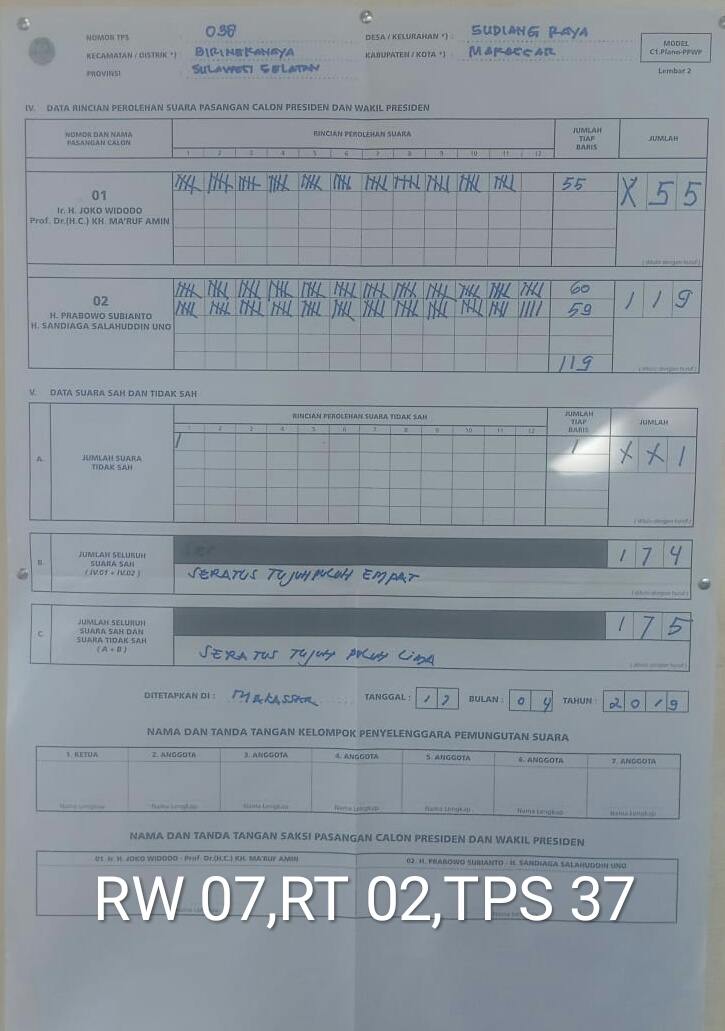 NOMOR TPS : 038 DESA / KELURAHAN *) : SUDIANG RAYA
KECAMATAN / DISTRIK *) : BIRINGKANAYA KABUPATEN / KOTA *) : MAKASSAR
PROVINSI : SULAWESI SELATAN
MODEL
C1.Plano-PPWP
Lembar 2
IV. DATA RINCIAN PEROLEHAN SUARA PASANGAN CALON PRESIDEN DAN WAKIL PRESIDEN
NOMOR DAN NAMA
PASANGAN CALON
RINCIAN PEROLEHAN SUARA
1 2 3 4 5 6 7 8 9 10 11 12
JUMLAH
TIAP
BARIS
JUMLAH
01
Ir. H. JOKO WIDODO
Prof. Dr.(H.C.) KH. MA'RUF AMIN
55
X 5 5
( ditulis dengan huruf )
02
H. PRABOWO SUBIANTO
H. SANDIAGA SALAHUDDIN UNO
60
59
119
1 1 9
( ditulis dengan huruf )
V. DATA SUARA SAH DAN TIDAK SAH
RINCIAN PEROLEHAN SUARA TIDAK SAH
1 2 3 4 5 6 7 8 9 10 11 12
JUMLAH
TIAP
BARIS
JUMLAH
A.
JUMLAH SUARA
TIDAK SAH
1
X X 1
( ditulis dengan huruf )
B.
JUMLAH SELURUH
SUARA SAH
( IV.01 + IV.02 )
1 7 4
SERATUS TUJUH PULUH EMPAT
( ditulis dengan huruf )
C.
JUMLAH SELURUH
SUARA SAH DAN
SUARA TIDAK SAH
( A + B )
1 7 5
SERATUS TUJUH PULUH LIMA
( ditulis dengan huruf )
DITETAPKAN DI : MAKASSAR TANGGAL : 17 BULAN : 04 TAHUN : 2019
NAMA DAN TANDA TANGAN KELOMPOK PENYELENGGARA PEMUNGUTAN SUARA
1. KETUA 2. ANGGOTA 3. ANGGOTA 4. ANGGOTA 5. ANGGOTA 6. ANGGOTA 7. ANGGOTA
Nama Lengkap Nama Lengkap Nama Lengkap Nama Lengkap Nama Lengkap Nama Lengkap Nama Lengkap
NAMA DAN TANDA TANGAN SAKSI PASANGAN CALON PRESIDEN DAN WAKIL PRESIDEN
01. Ir. H. JOKO WIDODO - Prof. Dr.(H.C.) KH. MA'RUF AMIN 02. H. PRABOWO SUBIANTO - H. SANDIAGA SALAHUDDIN UNO
RW 07,RT 02,TPS 37